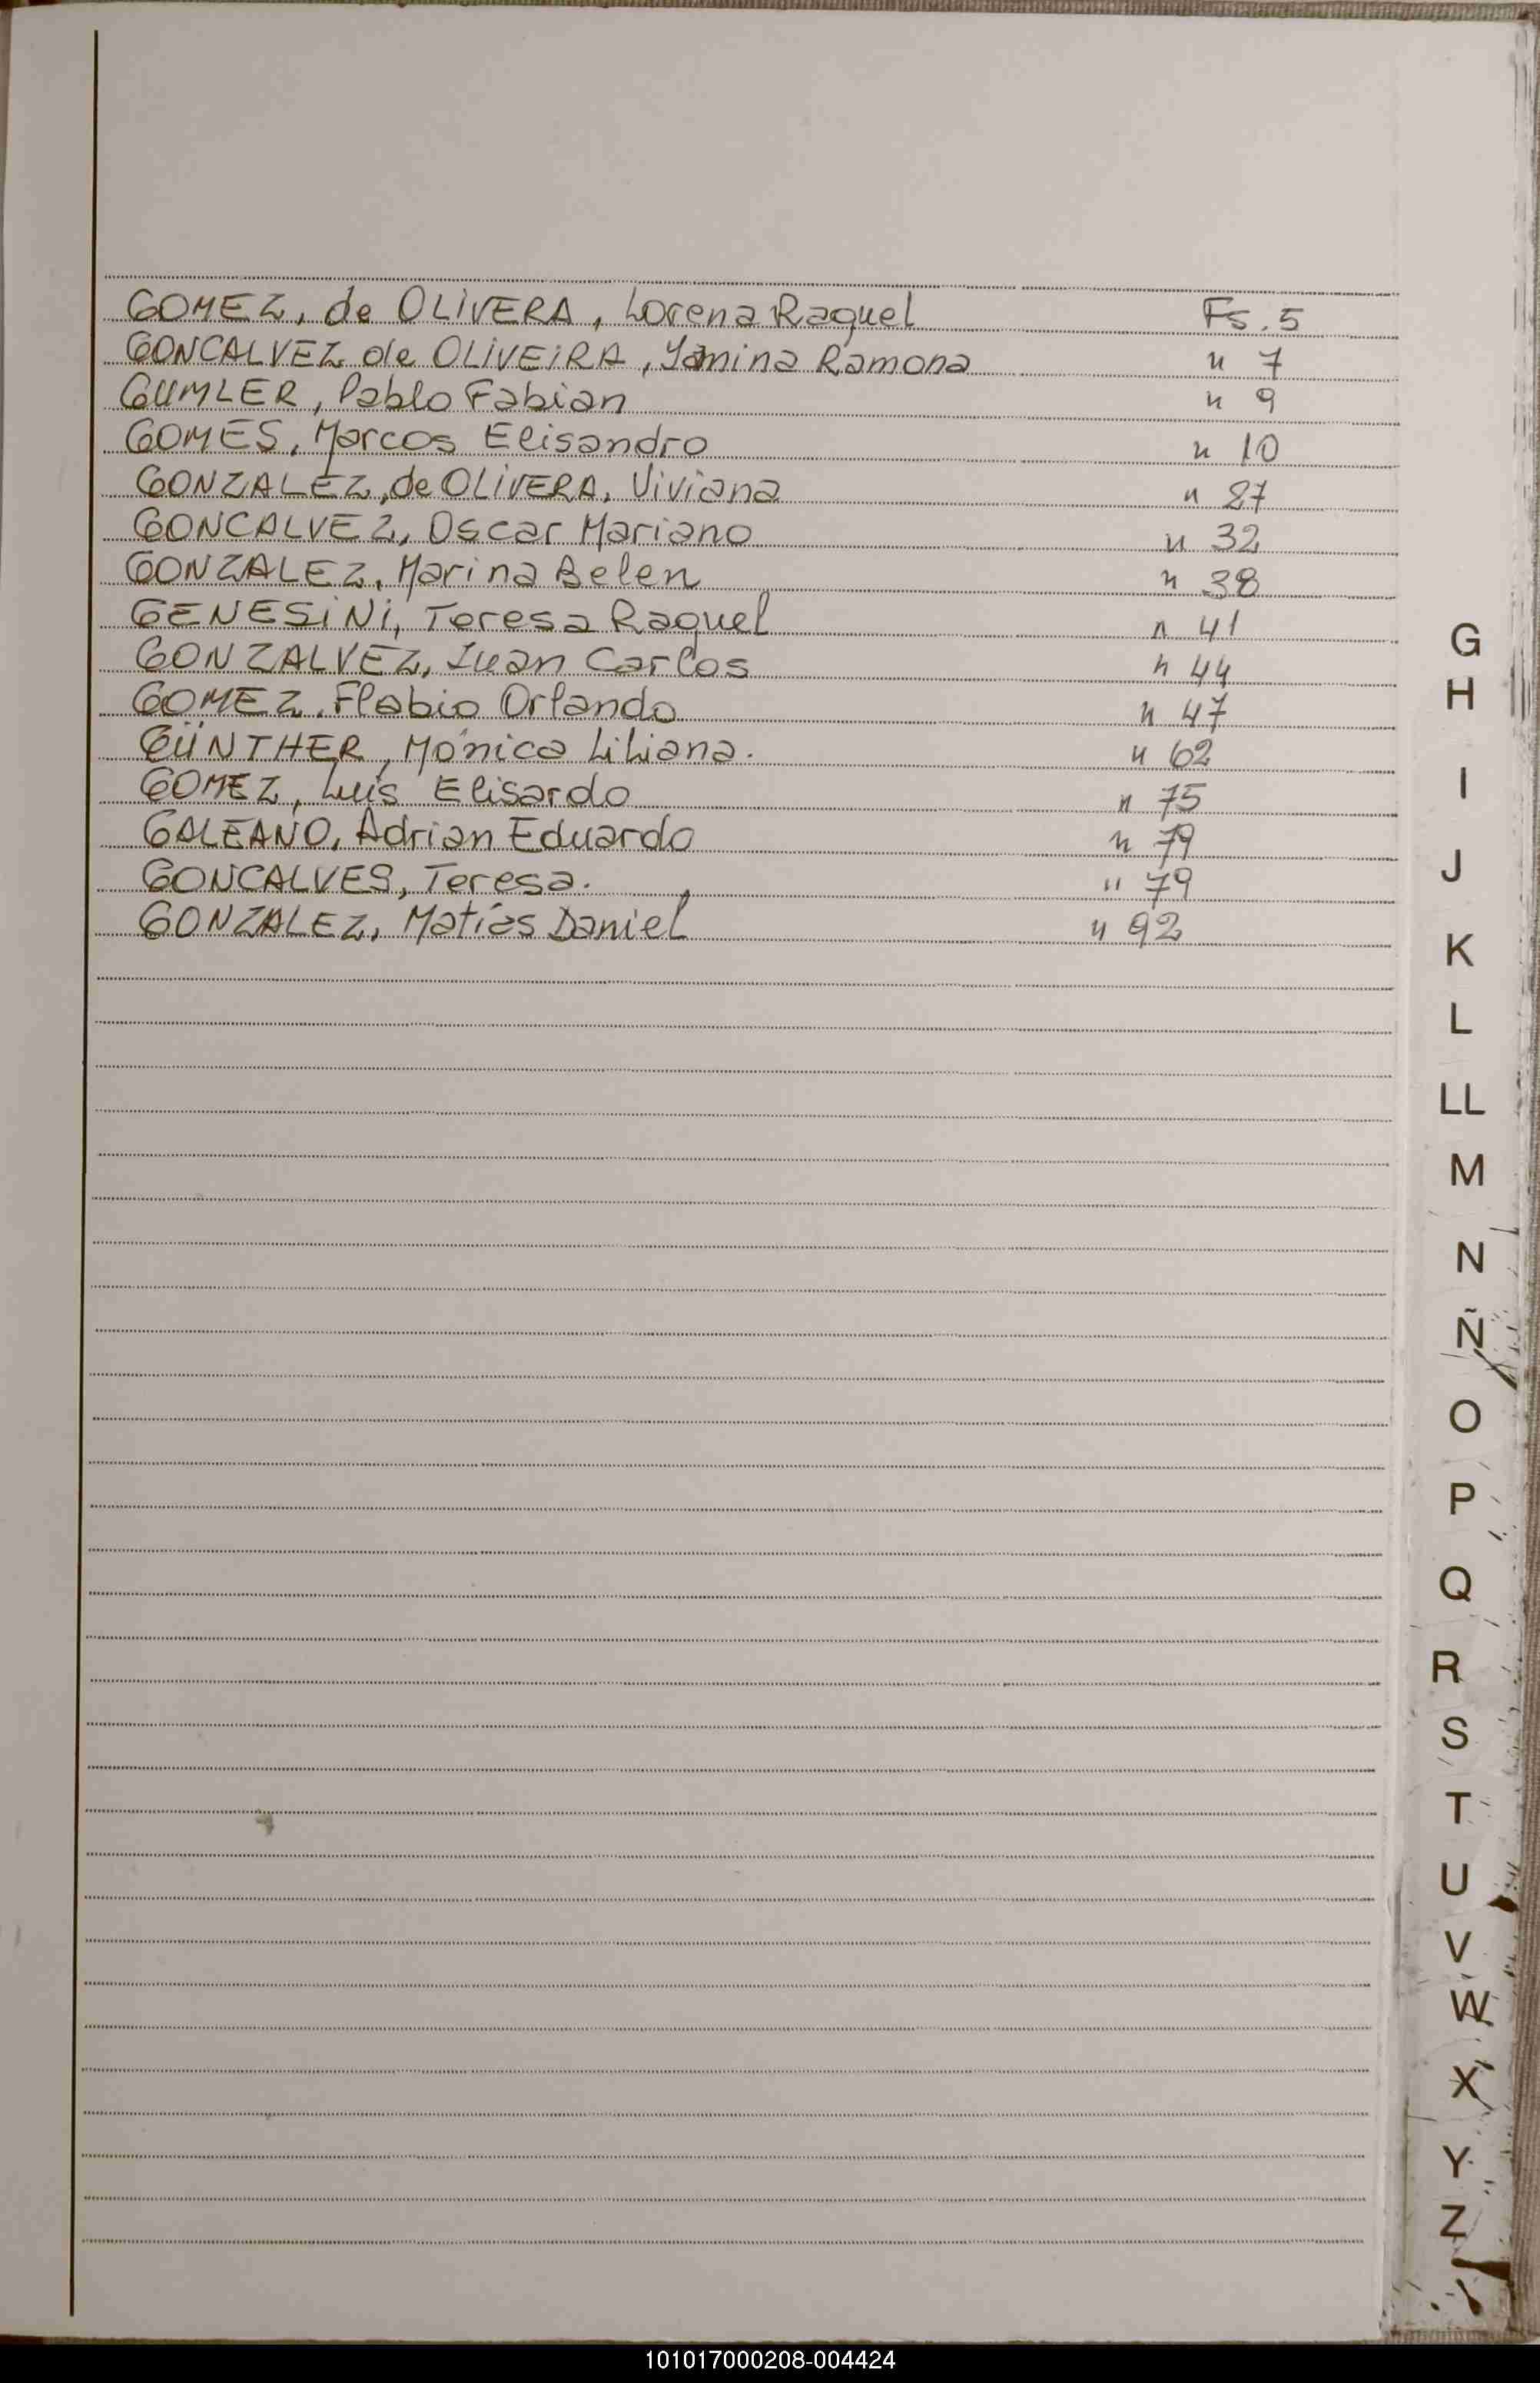 GOMEZ, de OLIVERA, Lorena Raquel Fs. 5
GONCALVEZ de OLIVEIRA, Yamina Ramona " 7
GUMLER, Pablo Fabian " 9
GOMES, Marcos Elisandro " 10
GONZALEZ, de OLIVERA, Viviana " 27
GONCALVEZ, Oscar Mariano " 32
GONZALEZ, Marina Belen " 38
GENESINI, Teresa Raquel " 41
GONZALVEZ, Juan Carlos " 44
GOMEZ, Flabio Orlando " 47
GÜNTHER, Mónica Liliana. " 62
GOMEZ, Luis Elisardo " 75
GALEANO, Adrian Eduardo " 79
GONCALVES, Teresa. " 79
GONZALEZ, Matías Daniel " 92
G
H
I
J
K
L
LL
M
N
Ñ
O
P
Q
R
S
T
U
V
W
X
Y
Z
101017000208-004424